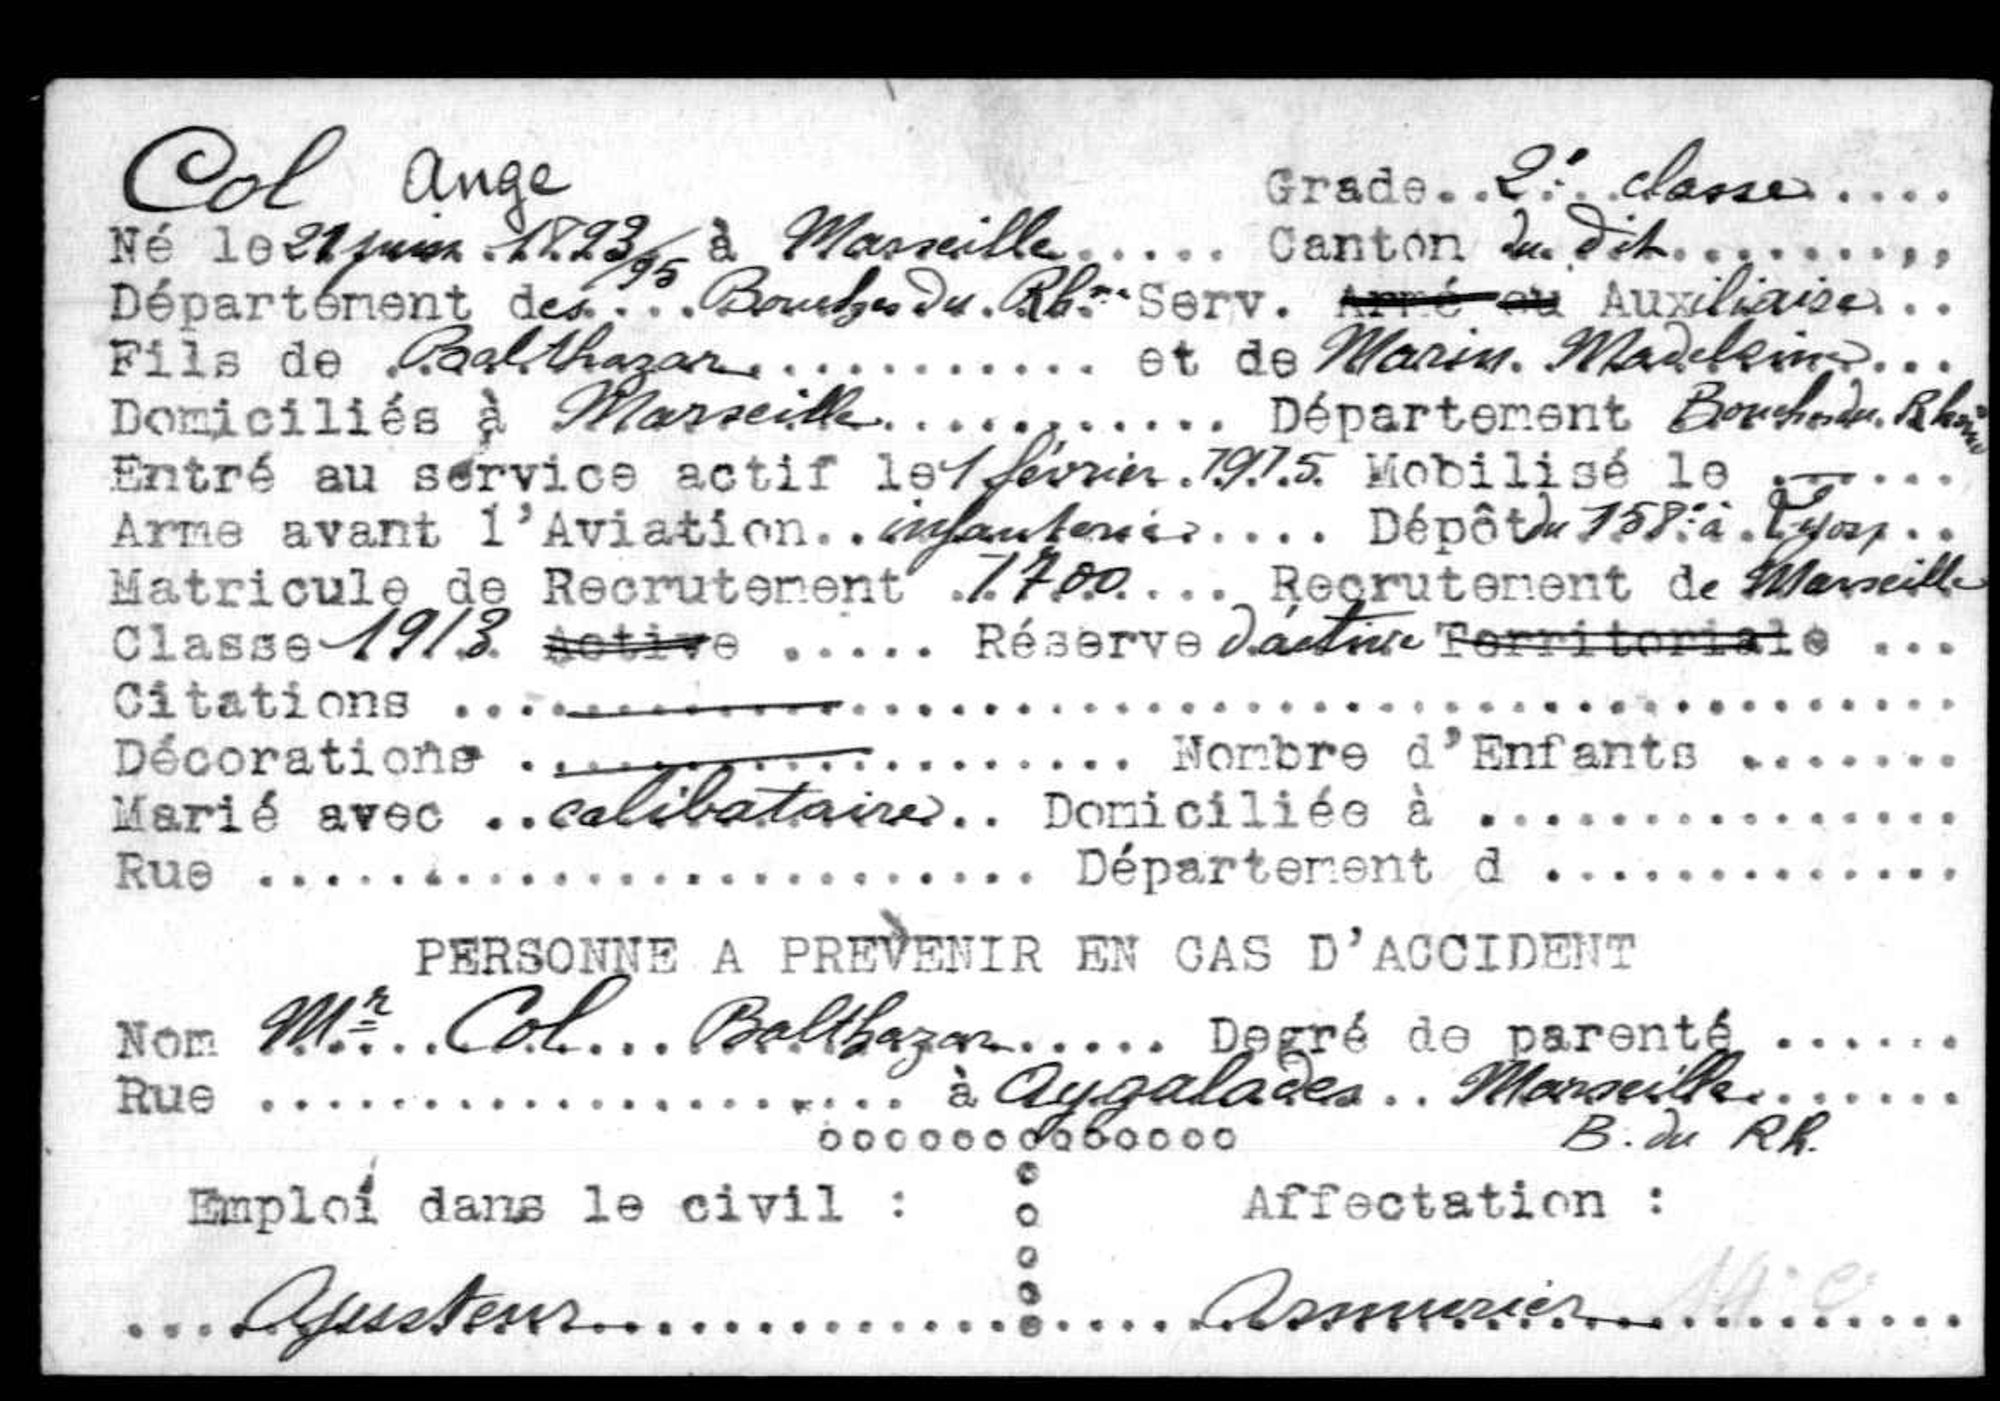 Col Ange Grade.. 2e. classe ....
Né le 21 juin 1893/95 à Marseille ..... Canton du dit ........
Département des.... Bouches du Rhne Serv. Armé ou Auxiliaire ...
Fils de Balthazar ............ et de Marin. Madeleine ...
Domiciliés à Marseille ............ Département Bouches du Rhône
Entré au service actif le 1 février 1915 Mobilisé le ......
Arme avant l'Aviation.. infanterie .... Dépôt du 158e à Lyon ..
Matricule de Recrutement 1700 .... Recrutement de Marseille
Classe 1913 Active ..... Réserve d'active Territoriale ...
Citations ........................................
Décorations ...................... Nombre d'Enfants .......
Marié avec .. celibataire .. Domiciliée à ...............
Rue .............................. Département d ..............
PERSONNE A PREVENIR EN CAS D'ACCIDENT
Nom Mr.. Col... Balthazar ..... Degré de parenté ......
Rue ......................... à Aygalades.. Marseille .......
B. du Rh.
Emploi dans le civil : Affectation :
.... Ajusteur ................ Armurier ............